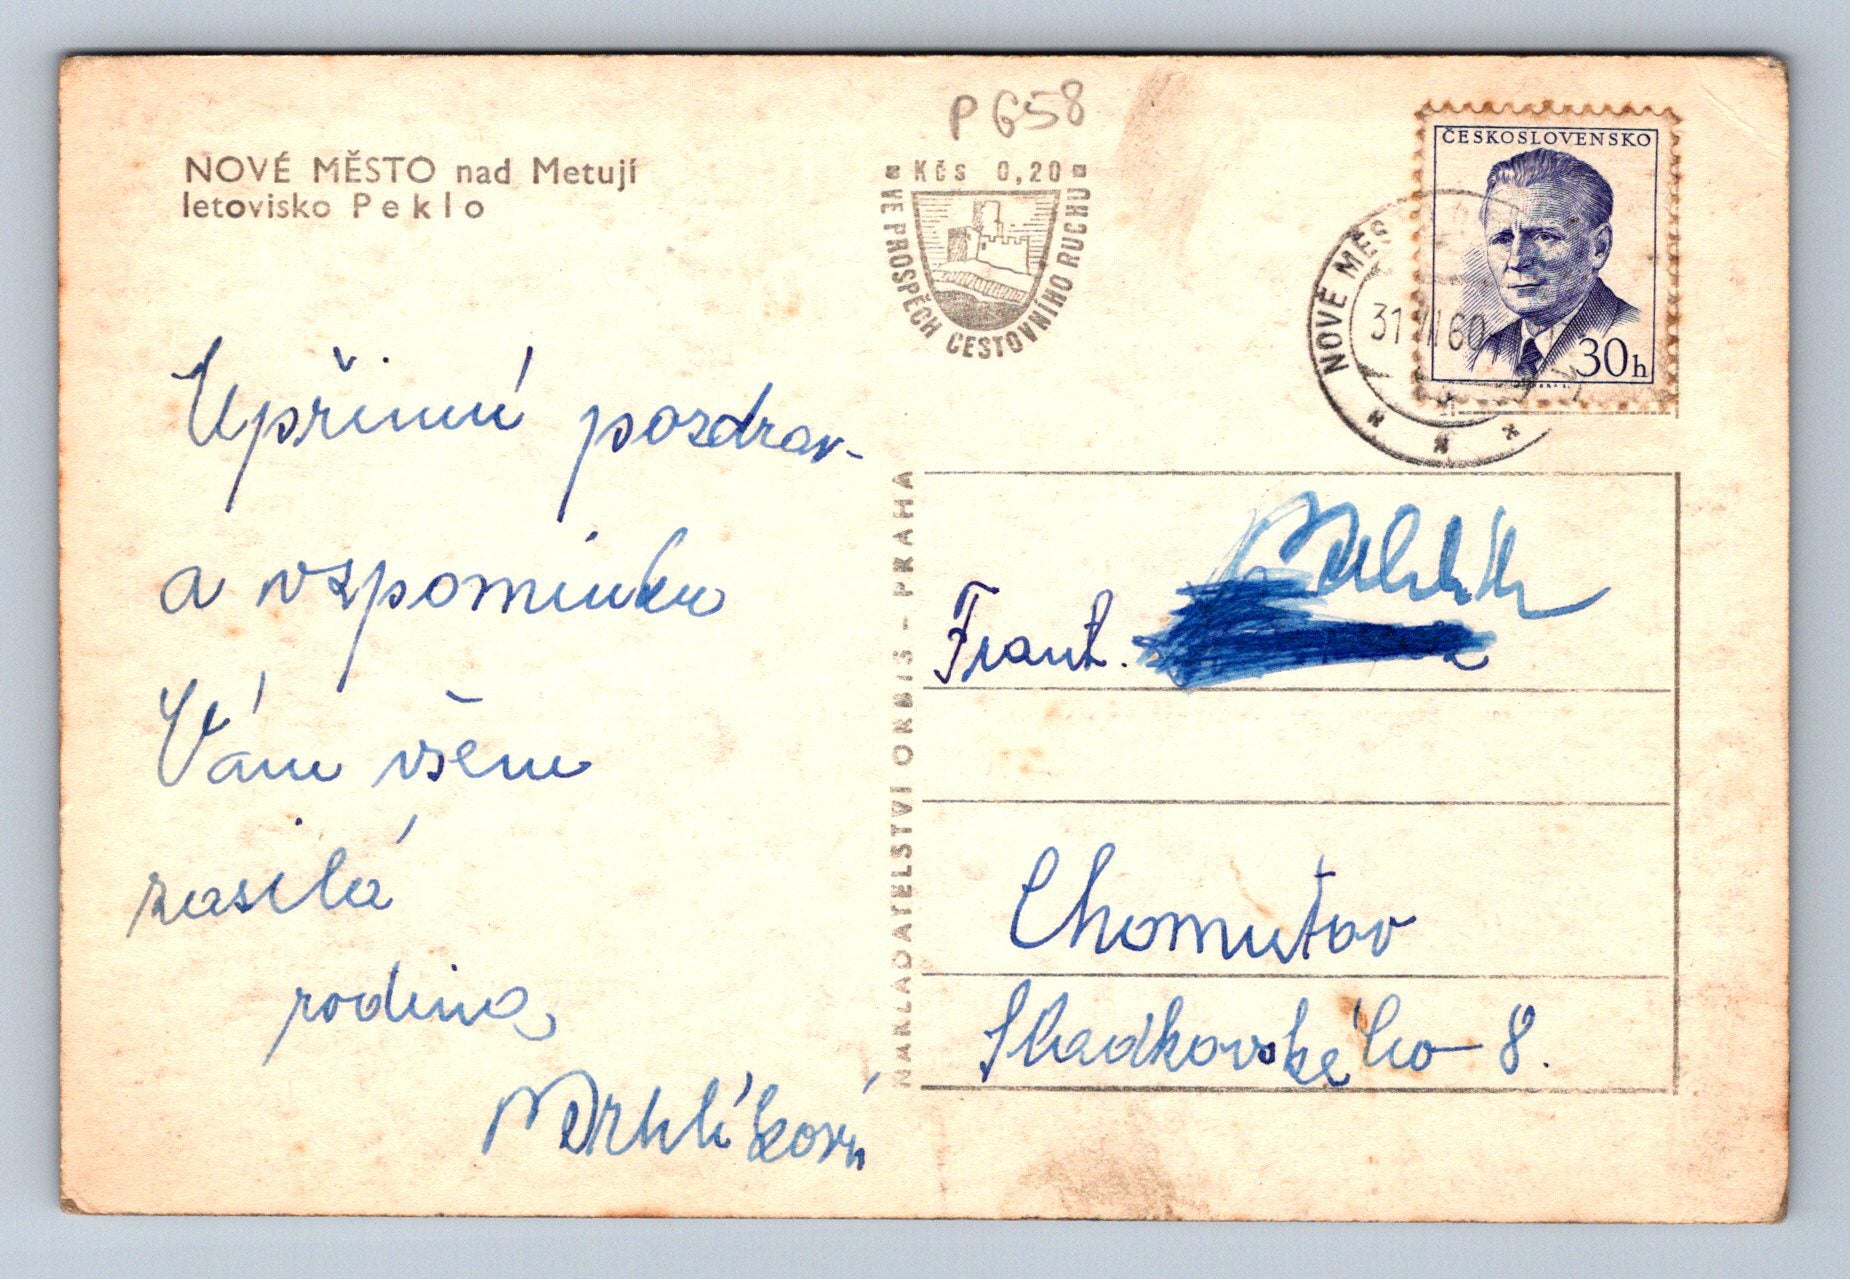 P 658
NOVÉ MĚSTO nad Metují
letovisko Peklo
Kčs 0,20
VE PROSPĚCH CESTOVNÍHO RUCHU
ČESKOSLOVENSKO
30h
NOVÉ MĚS
31 60
Upřimný pozdrav
a vzpomínku
Vám všem
zasílá
rodina
NAKLADATELSTVÍ ORBIS - PRAHA
Frant.
Chomutov
Sladkovského 8.